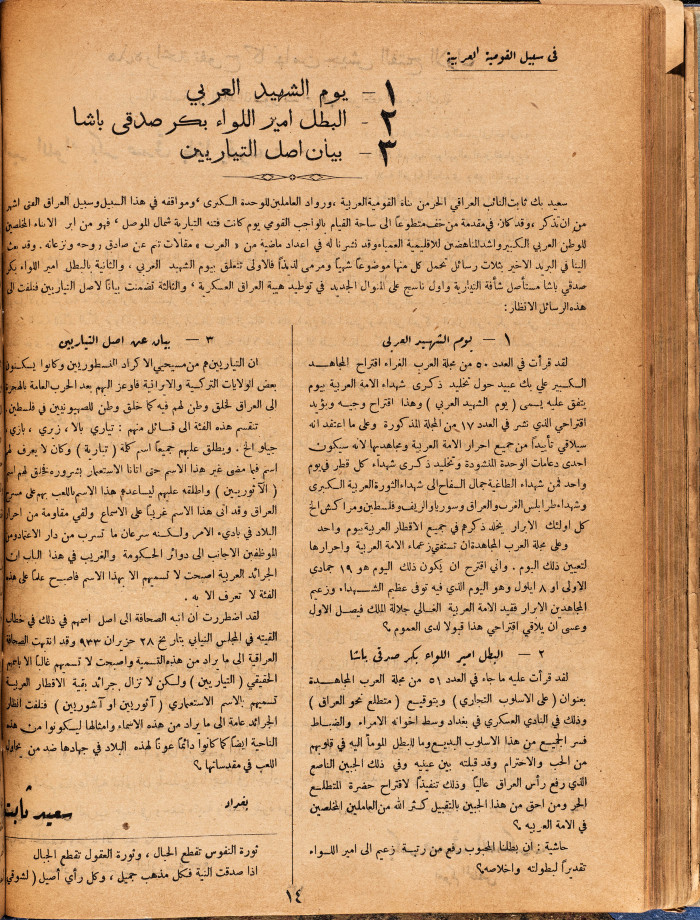 في سبيل القومية العربية
١ – يوم الشهيد العربي
٢ – البطل امير اللواء بكر صدقي باشا
٣ – بيان اصل التياريين
سعيد بك ثابت النائب العراقي الحر من بناة القومية العربية ، ورواد العاملين للوحدة الكبرى ، ومواقفه في هذا السبيل وسبيل العراق الفتى اشهر
من ان تذكر ، وقد كان في مقدمة من خف متطوعاً الى ساحة القيام بالواجب القومي يوم كانت فتنة التيارية شمال الموصل ، فهو من ابر الابناء المخلصين
للوطن العربي الكبير واشد المناهضين للاقليمية العمياء وقد نشرنا له في اعداد ماضية من « العرب » مقالات تنم عن صادق روحه ونزعاته . وقد بعث
الينا في البريد الاخير بثلاث رسائل تحمل كل منها موضوعاً شهياً ومرمى لذيذاً فالاولى تتعلق بيوم الشهيد العربي ، والثانية بالبطل امير اللواء بكر
صدقي باشا مستأصل شأفة التيارية واول ناسج على المنوال الجديد في توطيد هيبة العراق العسكرية ، والثالثة تضمنت بياناً لاصل التياريين فنلفت الى
هذه الرسائل الانظار :
١ – يوم الشهيد العربى
لقد قرأت في العدد ٥٠ من مجلة العرب الغراء اقتراح المجاهد
الكبير علي بك عبيد حول تخليد ذكرى شهداء الامة العربية بيوم
يتفق عليه يسمى ( يوم الشهيد العربي ) وهذا اقتراح وجيه ويؤيد
اقتراحي الذي نشر في العدد ١٧ من المجلة المذكورة وعلى ما اعتقد انه
سيلاقي تأييداً من جميع احرار الامة العربية ومجاهديها لانه سيكون
احدى دعامات الوحدة المنشودة وتخليد ذكرى شهداء كل قطر في يوم
واحد فمن شهداء الطاغية جمال السفاح الى شهداء الثورة العربية الكبرى
وشهداء طرابلس الغرب والعراق وسوريا والريف وفلسطين ومراكش الخ
كل اولئك الابرار يخلد ذكرهم في جميع الاقطار العربية بيوم واحد
وعلى مجلة العرب المجاهدة ان تستفتي زعماء الامة العربية واحرارها
لتعيين ذلك اليوم . واني اقترح ان يكون ذلك اليوم هو ١٩ جمادى
الاولى او ٨ ايلول وهو اليوم الذي فيه توفى عظيم الشهداء وزعيم
المجاهدين الابرار فقيد الامة العربية الغالي جلالة الملك فيصل الاول
وعسى ان يلاقي اقتراحي هذا قبولا لدى العموم ؟
٢ – البطل امير اللواء بكر صدقى باشا
لقد قرأت عليه ما جاء في العدد ٥١ من مجلة العرب المجاهدة
بعنوان ( على الاسلوب التجاري ) وبتوقيع ( متطلع نحو العراق )
وذلك في النادي العسكري في بغداد وسط اخوانه الامراء والضباط
فسر الجميع من هذا الاسلوب البديع وما للبطل الموماً اليه في قلوبهم
من الحب والاحترام وقد قبلته بين عينيه وفي ذلك الجبين الناصع
الذي رفع رأس العراق عالياً وذلك تنفيذاً لاقتراح حضرة المتطلع
الحر ومن احق من هذا الجبين بالتقبيل كثر الله من العاملين المخلصين
في الامة العربيه ؟
حاشية : ان بطلنا المحبوب رفع من رتبة زعيم الى امير اللواء
تقديراً لبطولته واخلاصه ؟
٣ – بيان عن اصل التياريين
ان التياريين هم من مسيحيي الاكراد النسطوريين وكانوا يسكنون
بعض الولايات التركية والايرانية فاوعز اليهم بعد الحرب العامة بالهجرة
الى العراق لخلق وطن لهم فيه كما خلق وطن للصهيونيين في فلسطين
تنقسم هذه الفئة الى قبائل منهم : تياري بالا ، زيري ، بازي ،
جيلو الخ . ويطلق عليهم جميعاً اسم كلة ( تيارية ) وكان لا يعرف لهم
اسم فيما مضى غير هذا الاسم حتى اتانا الاستعمار بشروره فخلق لهم اسم
( الآثوريين ) واطلقه عليهم ليساعدهم هذا الاسم باللعب بهم على مسرح
العراق وقد اتى هذا الاسم غريباً على الاسماع ولقي مقاومة من احرار
البلاد في بادىء الامر ولكنه سرعان ما تسرب من دار الاعتماد ومن
الموظفين الاجانب الى دوائر الحكومة والغريب في هذا الباب ان
الجرائد العربية اصبحت لا تسميهم الا بهذا الاسم فاصبح علماً على هذه
الفئة لا تعرف الا به .
لقد اضطررت ان انبه الصحافة الى اصل اسمهم في ذلك في خطاب
القيته في المجلس النيابي بتاريخ ٢٨ حزيران ٩٣٣ وقد انتبهت الصحافة
العراقية الى ما يراد من هذه التسمية واصبحت لا تسميهم غالباً الا باسمهم
الحقيقي ( التياريين ) ولكن لا تزال جرائد بقية الاقطار العربية
تسميهم بالاسم الاستعماري ( آثوريين او آشوريين ) فنلفت انظار
الجرائد عامة الى ما يراد من هذه الاسماء وامثالها ليكونوا من هذه
الناحية ايضاً كما كانوا دائماً عوناً لهذه البلاد في جهادها ضد من يحاول
اللعب في مقدساتها ؟
بغداد
سعيد ثابت
ثورة النفوس تقطع الحبال ، وثورة العقول تقطع الجبال
اذا صدقت النية فكل مذهب جميل ، وكل رأي أصيل ( لشوقي
١٤